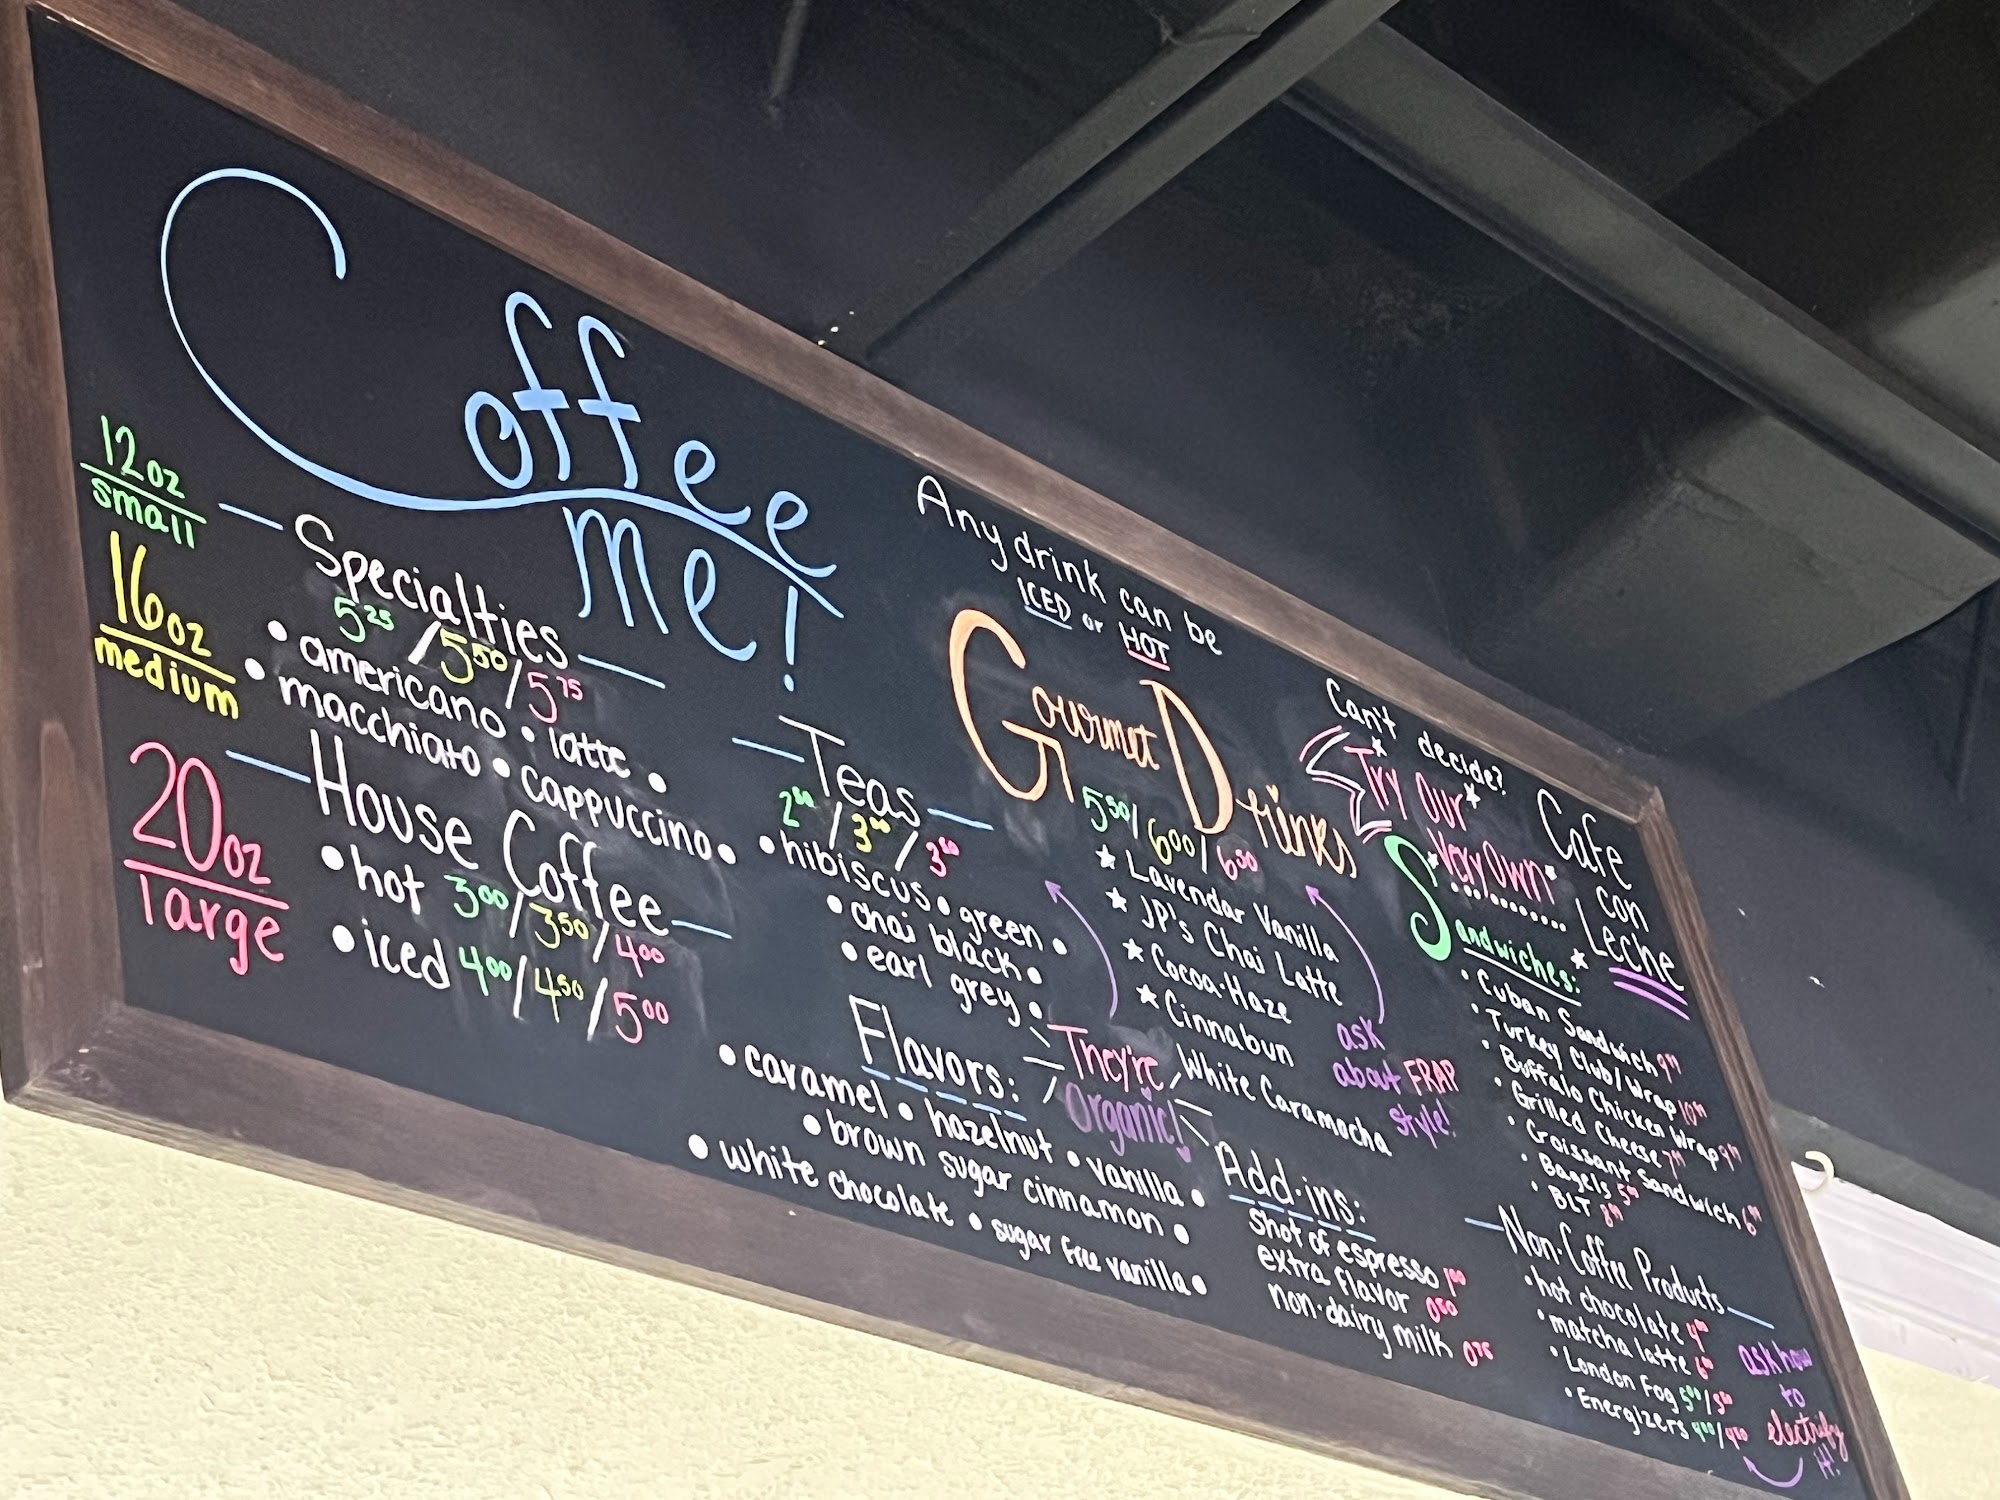 Coffee
me!
12oz
small
16oz
medium
20oz
large
Specialties
5²⁵/5⁵⁰/5⁷⁵
• americano • latte •
• macchiato • cappuccino •
House Coffee
• hot 3⁰⁰/3⁵⁰/4⁰⁰
• iced 4⁰⁰/4⁵⁰/5⁰⁰
Teas
• hibiscus • green •
• chai black •
• earl grey •
They're
Organic!
Flavors:
• caramel • hazelnut • vanilla •
• brown sugar cinnamon •
• white chocolate • sugar free vanilla •
Any drink can be
ICED or HOT
Gourmet Drinks
5⁵⁰/6⁰⁰/6⁵⁰
★ Lavendar Vanilla
★ JP's Chai Latte
★ Cocoa-Haze
★ Cinnabun
White Caramocha
ask
about FRAP
style!
Add-ins:
shot of espresso 1⁰⁰
extra flavor 0⁵⁰
non-dairy milk 0⁷⁵
Can't decide?
Try Our
Very Own
Cafe
con
Leche
Sandwiches:
• Cuban Sandwich
• Turkey Club/Wrap
• Buffalo Chicken Wrap
• Grilled Cheese
• Croissant Sandwich
• Bagels
• BLT
Non-Coffee Products
• hot chocolate
• matcha latte
• London Fog
• Energizers
ask how
to
electrify
it!